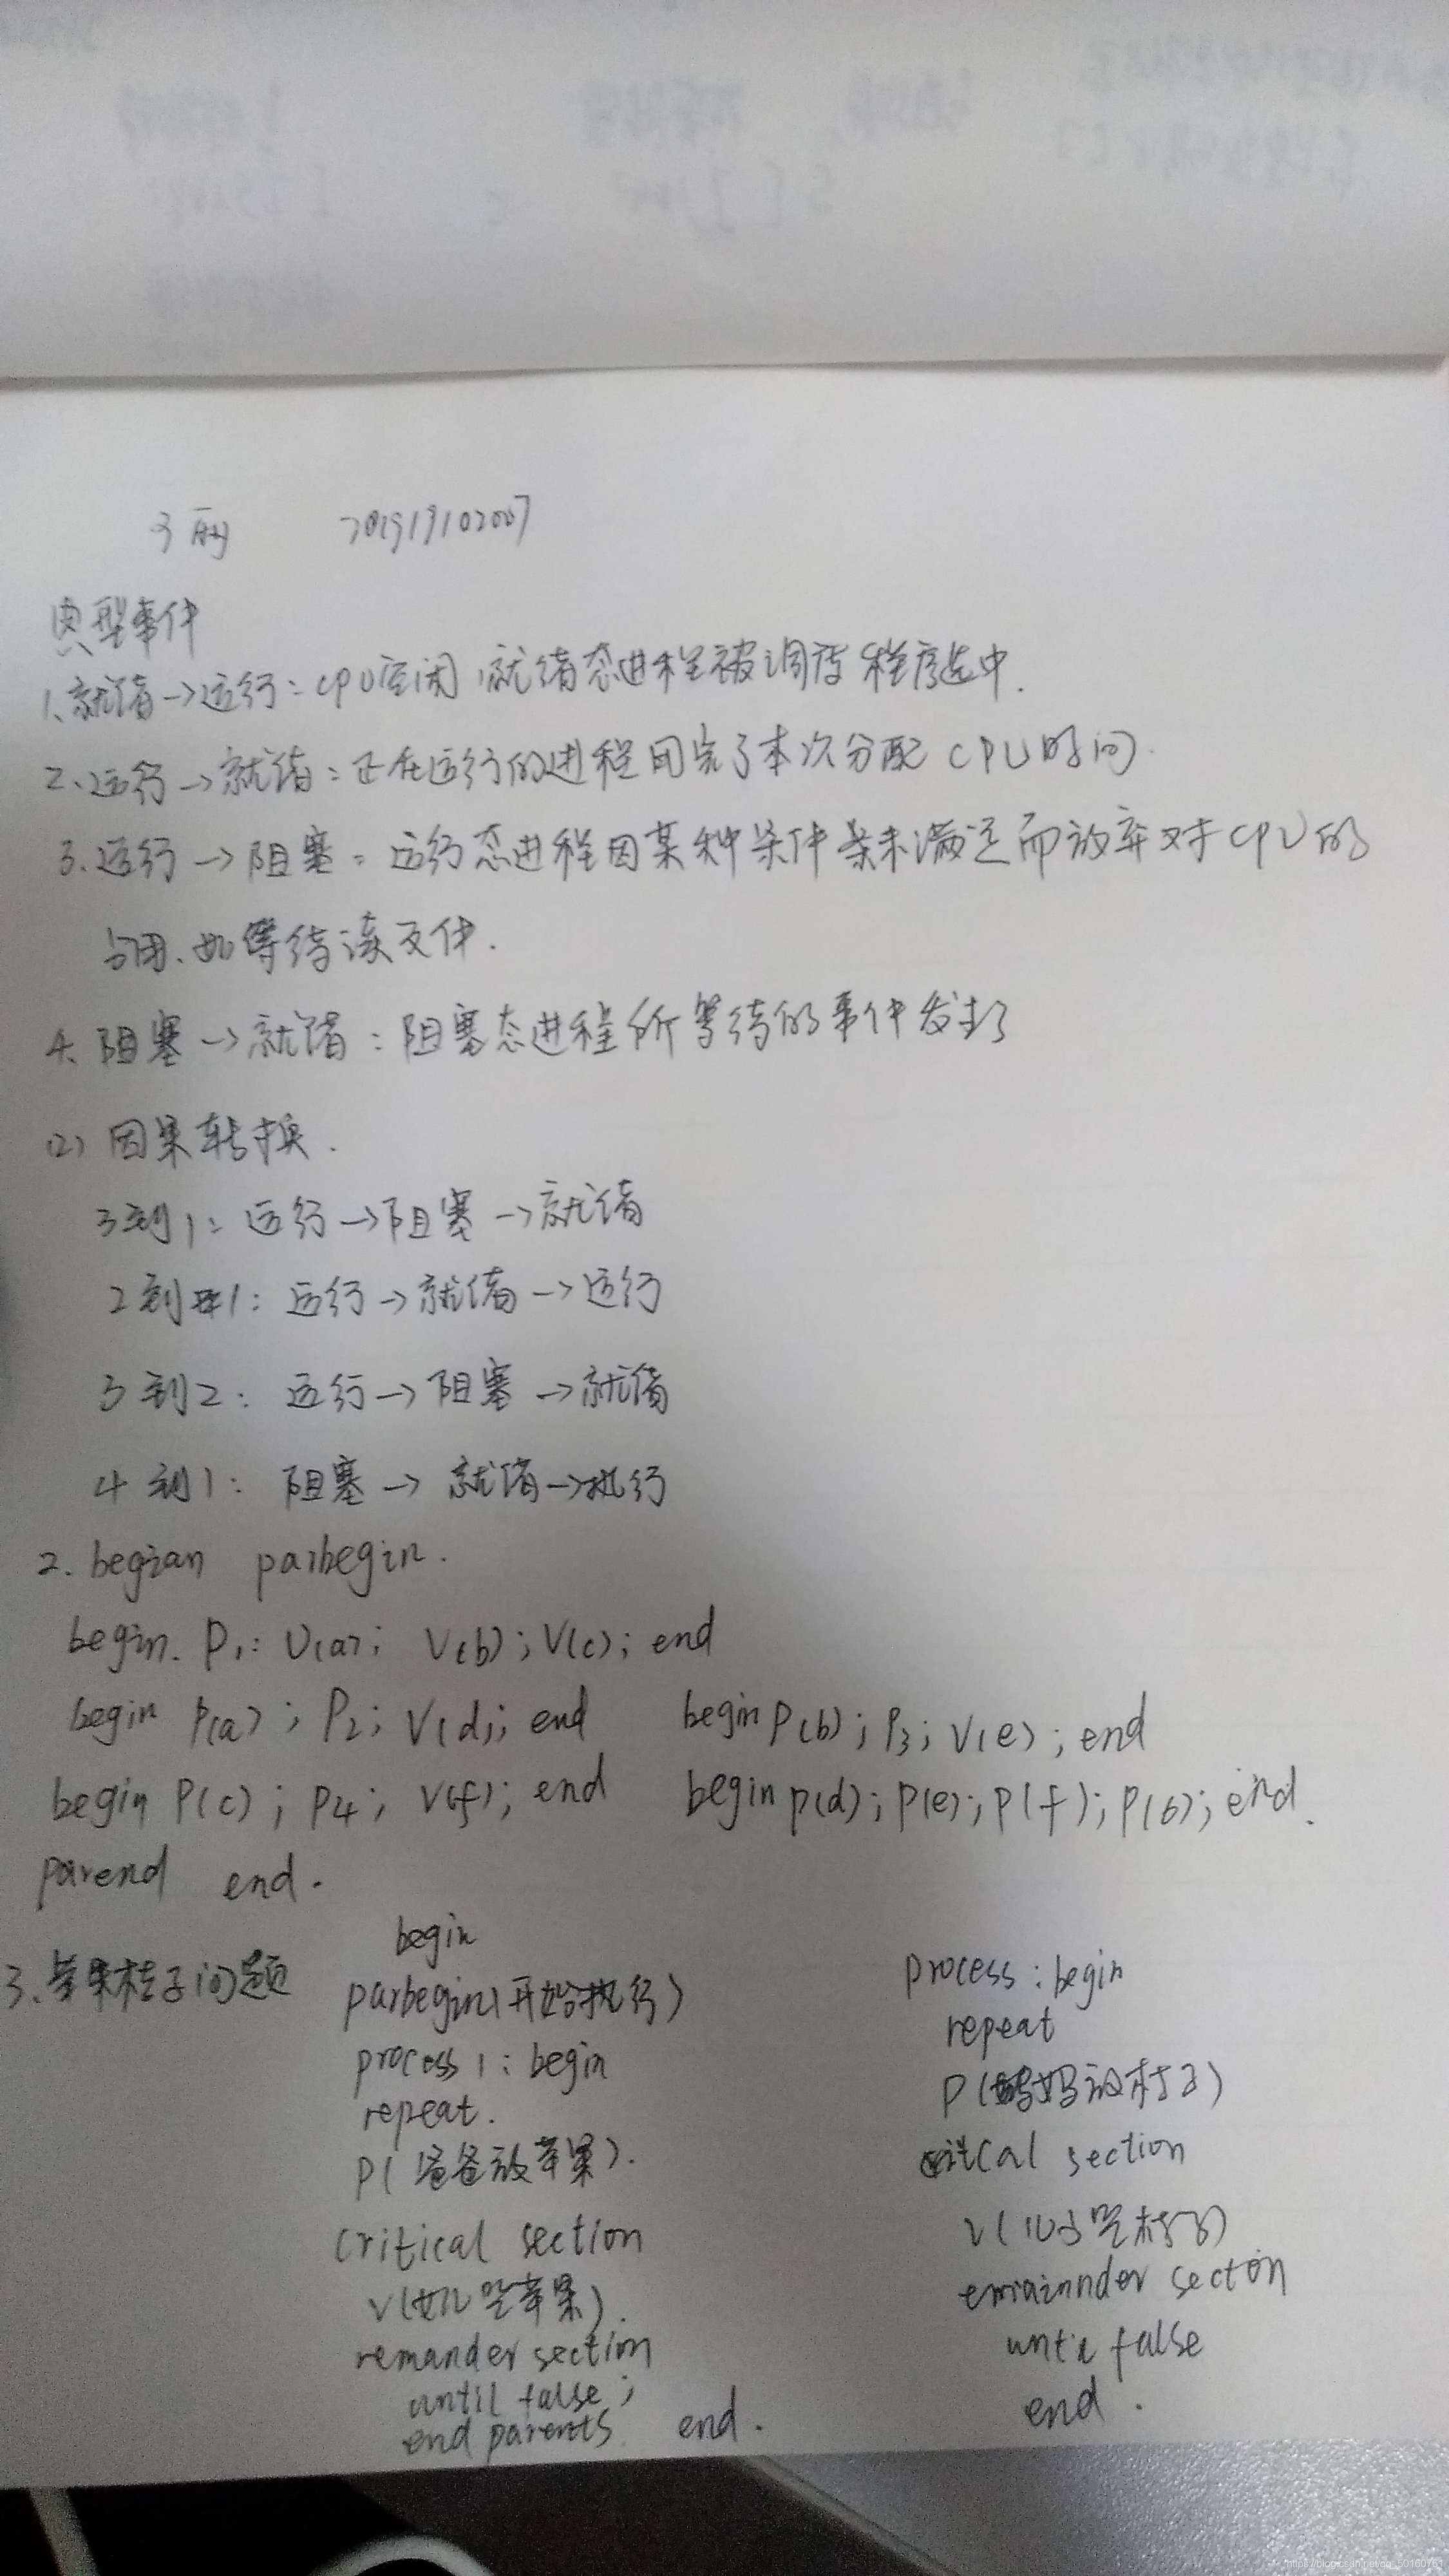 雨 201919102007
典型事件
1、就绪→运行：CPU空闲，就绪态进程被调度程序选中.
2、运行→就绪：正在运行的进程用完了本次分配CPU时间.
3.运行→阻塞：运行态进程因某种条件未满足而放弃对CPU的
占用、如等待读文件.
4、阻塞→就绪：阻塞态进程所等待的事件发生了
(2) 因果转换.
3到1：运行→阻塞→就绪
2到1：运行→就绪→运行
3到2：运行→阻塞→就绪
4到1：阻塞→就绪→执行
2. begian parbegin.
begin. P1: V(a); V(b); V(c); end
begin P(a); P2; V(d); end begin P(b); P3; V(e); end
begin P(c); P4; V(f); end begin p(d); p(e); p(f); p(6); end.
parend end.
3.苹果桔子问题
begin
parbegin(开始执行)
process 1: begin
repeat.
P(爸爸放苹果).
critical section
V(女儿吃苹果).
remander section
until false;
end parents end.
process: begin
repeat
P(妈妈放桔子)
critcal section
V(儿子吃桔子)
emiainnder secton
until false
end.